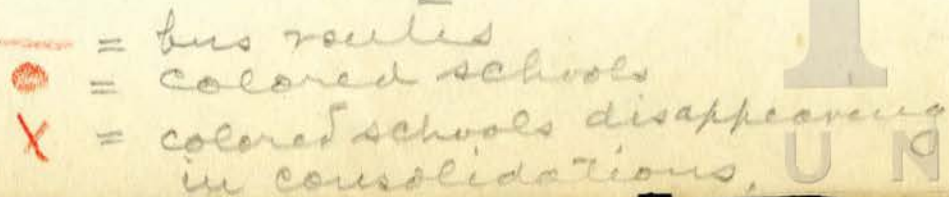 = bus routes
= colored schools
X = colored schools disappearing
in consolidations.
U N